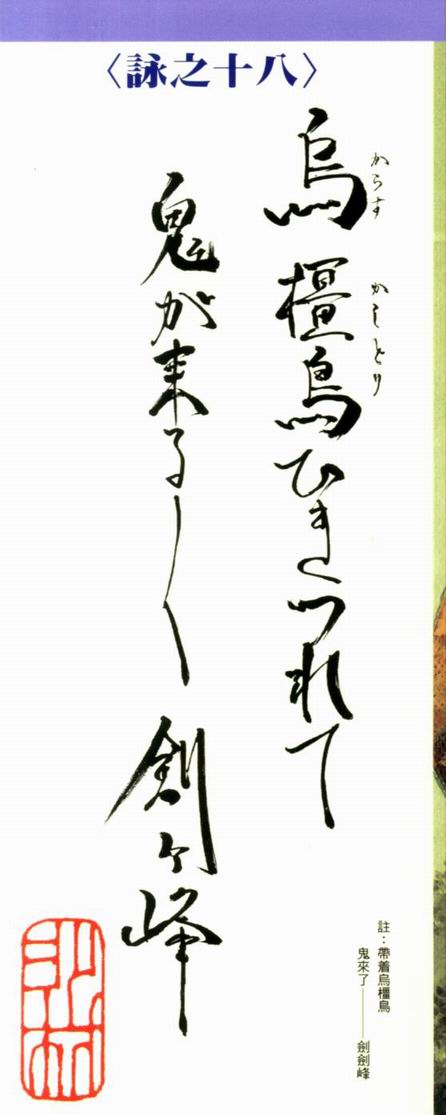 〈詠之十八〉
烏 橿鳥ひきつれて
からす かしどり
鬼が来る〱 劍ヶ峰
註：帶着烏橿鳥
鬼來了——劍劍峰